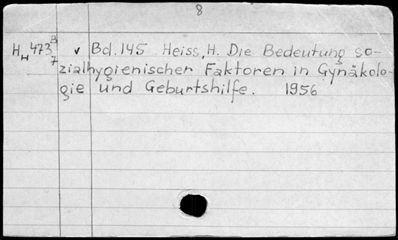 8
H H 473 B 7 v Bd. 145 Heiss, H. Die Bedeutung so-
zialhygienischer Faktoren in Gynäkolo-
gie und Geburtshilfe. 1956